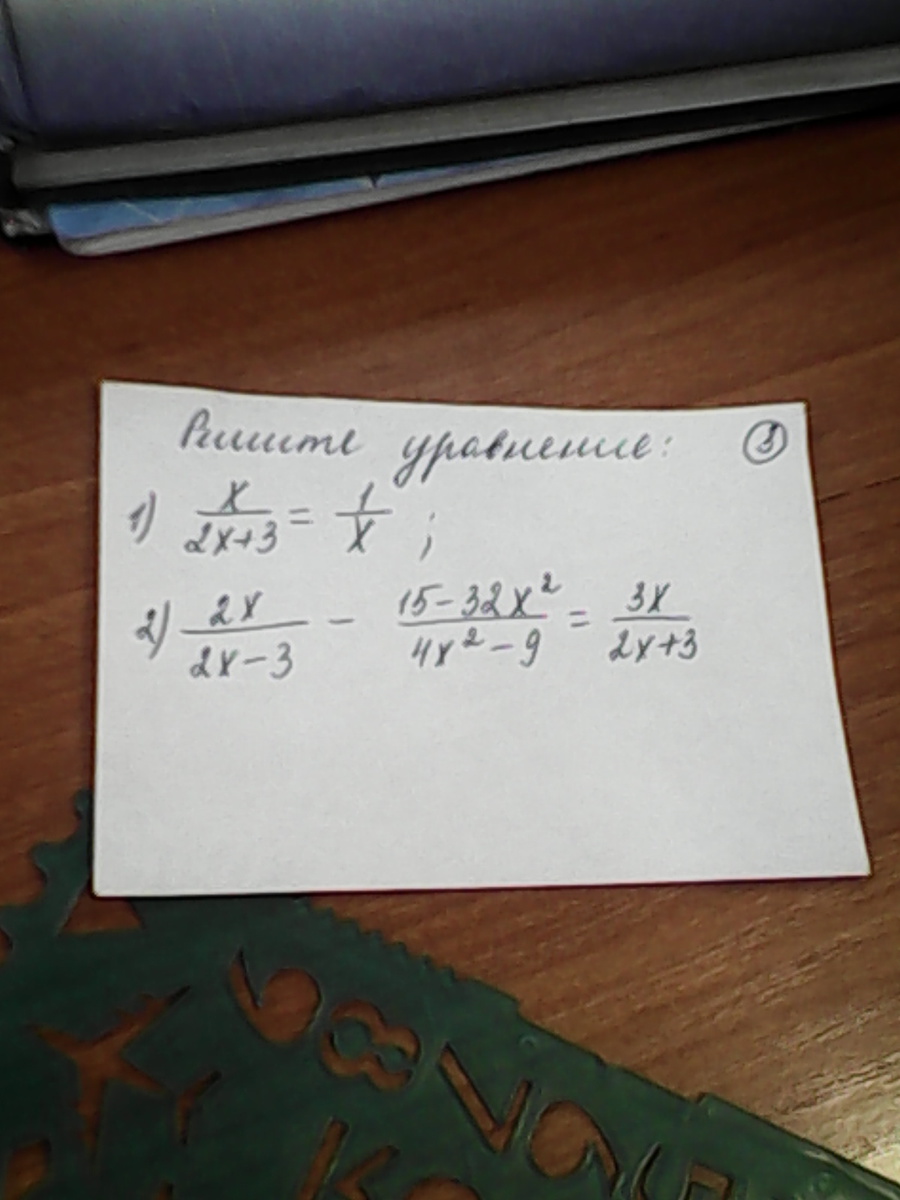 Решите уравнение: 3
1) x/(2x+3) = 1/x ;
2) 2x/(2x-3) - (15-32x²)/(4x²-9) = 3x/(2x+3)
6 8 7 9